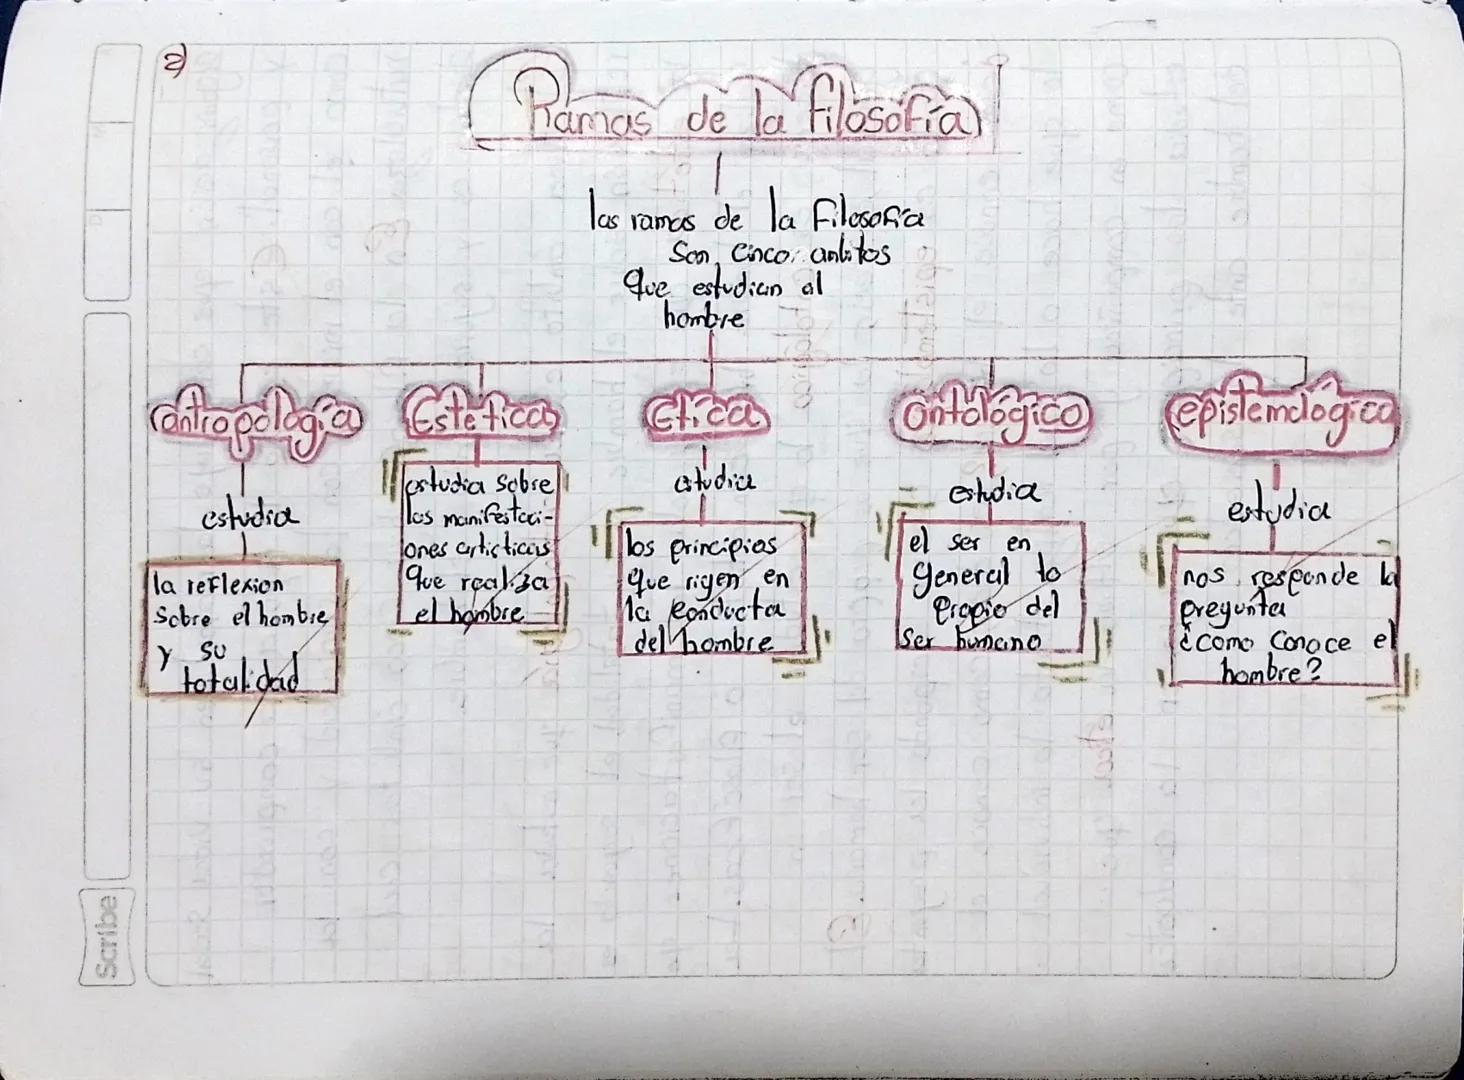 2)
Ramas de la filosofía
las ramas de la Filosofía
Son cinco ambitos
Que estudian al
hombre
antropología
estudia
la reflexion
Sobre el hombre
y su
totalidad
Estética
estudia sobre
las manifestaci-
ones articticas
Que realiza
el hombre
Etica
estudia
los principios
que rigen en
la conducta
del hombre
ontológico
estudia
el ser en
general lo
Propio del
ser humano
epistemológica
estudia
nos responde la
pregunta
¿como conoce el
hombre?
Scribe